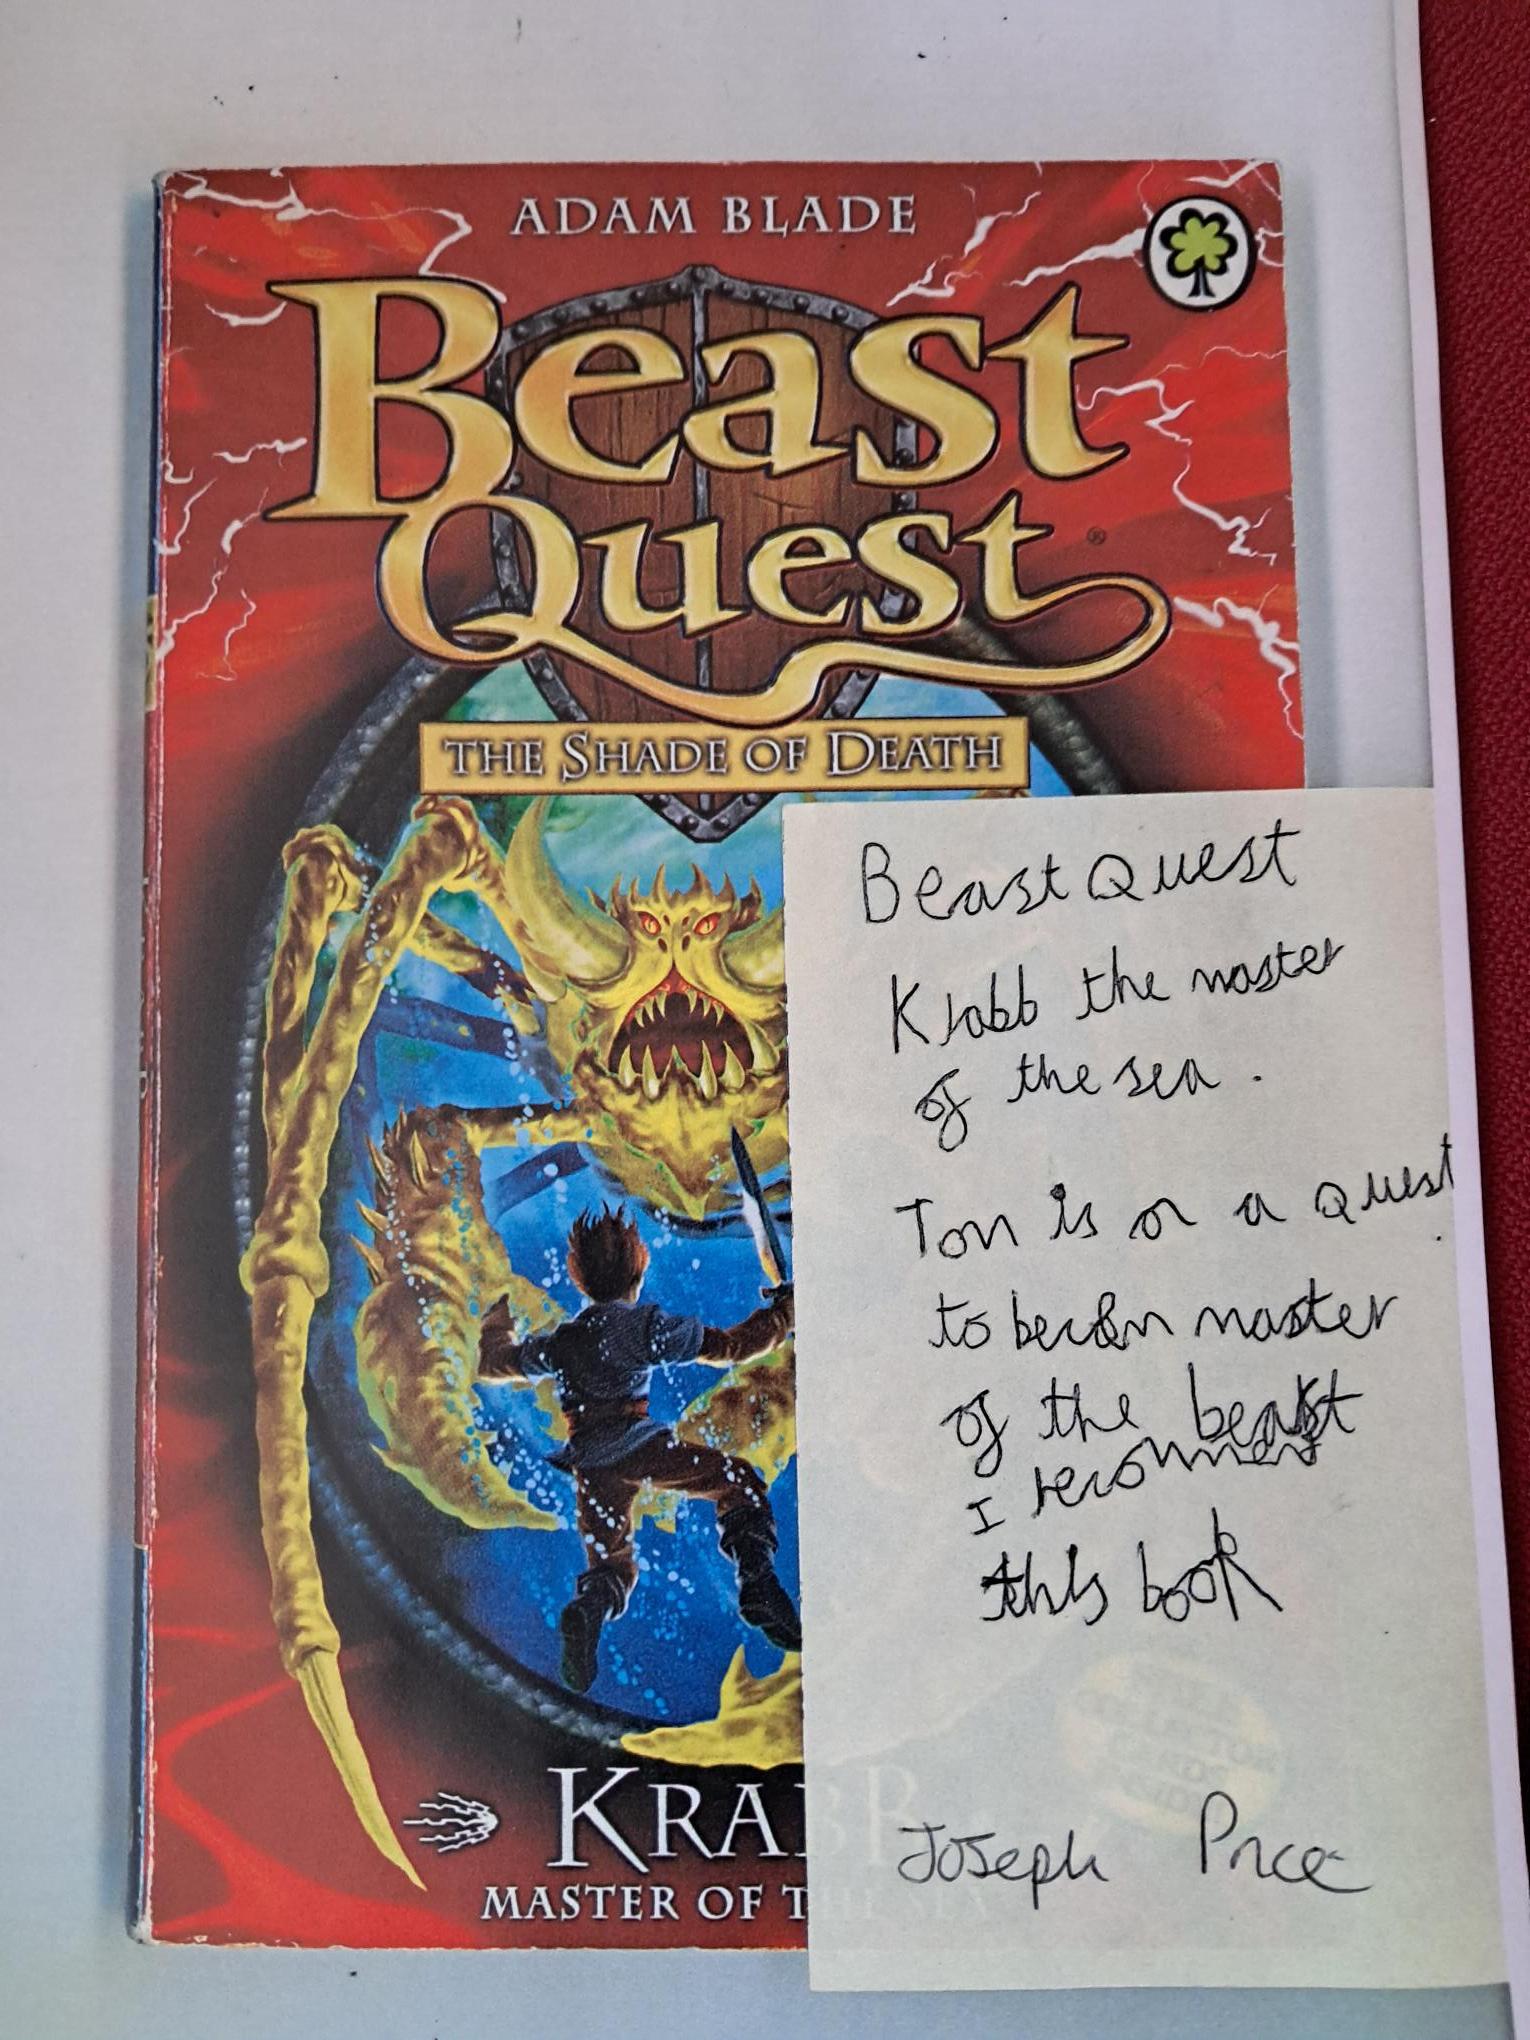 ADAM BLADE
Beast
Quest
®
THE SHADE OF DEATH
KRABB
MASTER OF THE SEA
Beast Quest
Krabb the master
of the sea.
Tom is on a quest.
to becom master
of the beast
I recommend
this book
Joseph Price